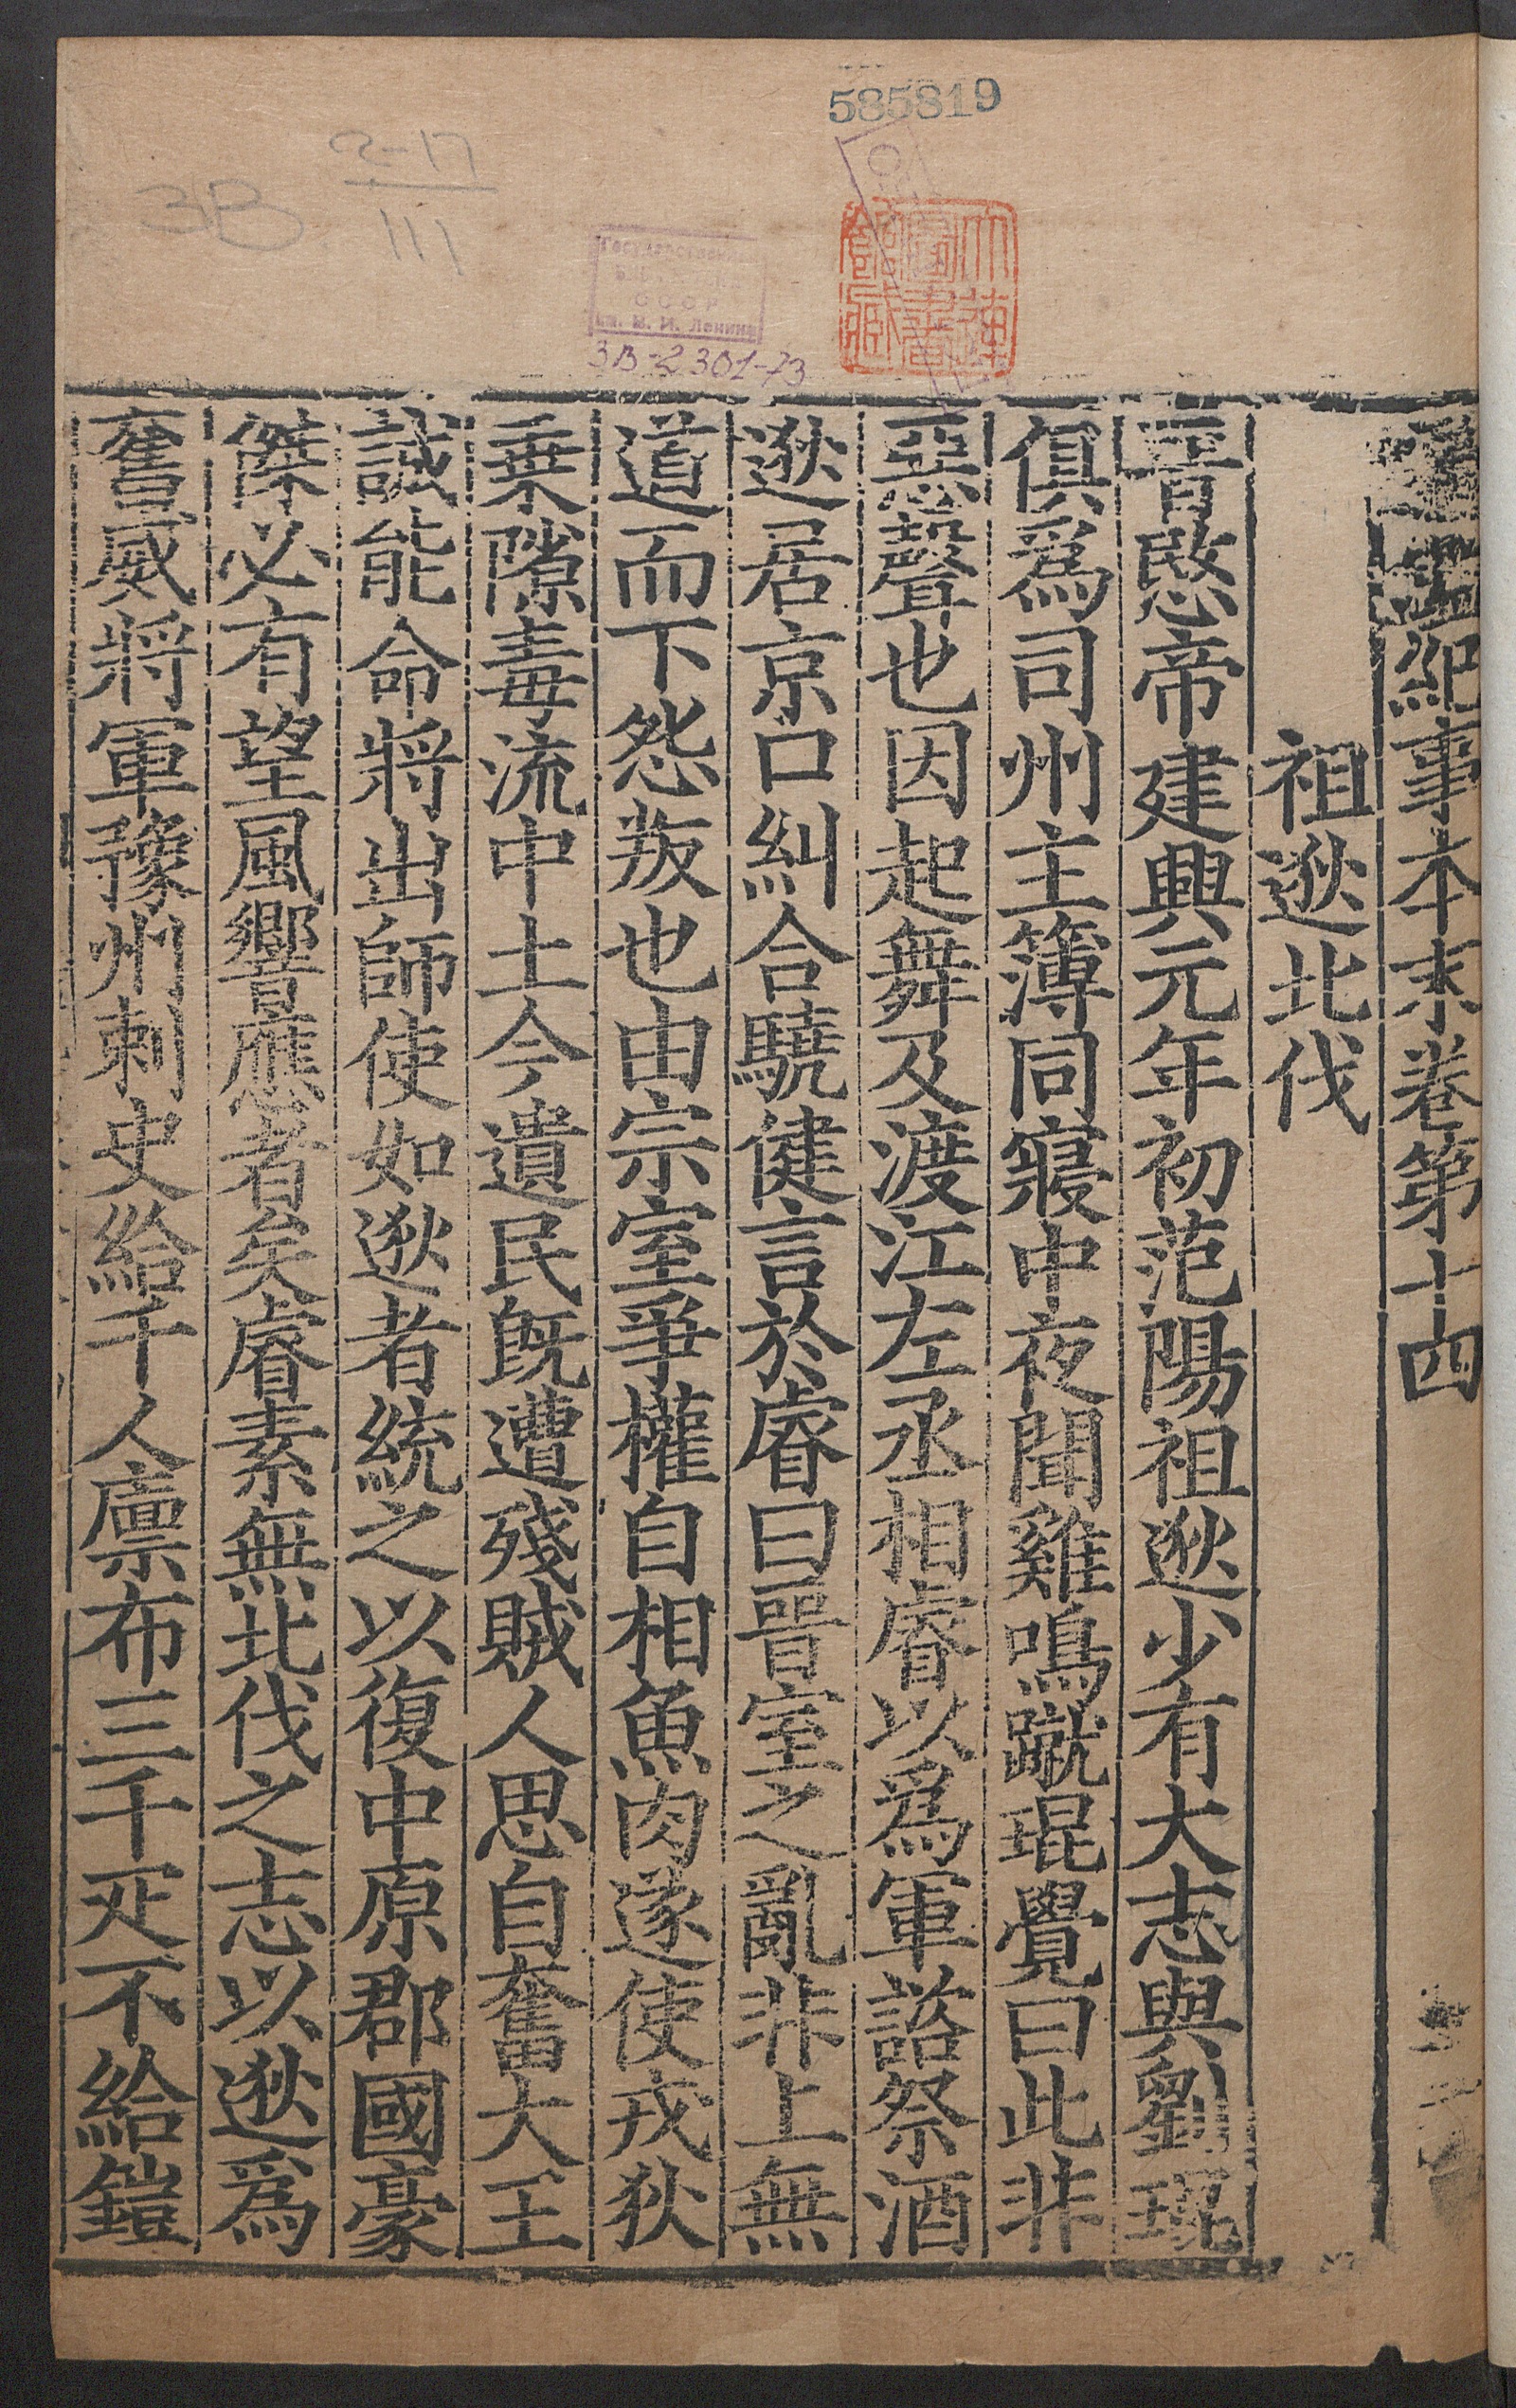 585819
2-17
3B
111
Государственная
СССР
им. В. И. Ленина
3B-2301-73
大連圖書館藏
通鑑紀事本末卷第十四
祖逖北伐
晉愍帝建興元年初范陽祖逖少有大志與劉琨
俱爲司州主簿同寢中夜聞雞鳴蹴琨覺曰此非
惡聲也因起舞及渡江左丞相睿以爲軍諮祭酒
逖居京口糾合驍健言於睿曰晉室之亂非上無
道而下怨叛也由宗室爭權自相魚肉遂使戎狄
乗隙毒流中土今遺民旣遭殘賊人思自奮大王
誠能命將出師使如逖者統之以復中原郡國豪
傑必有望風響應者矣睿素無北伐之志以逖爲
奮威將軍豫州刺史給千人廪布三千疋不給鎧